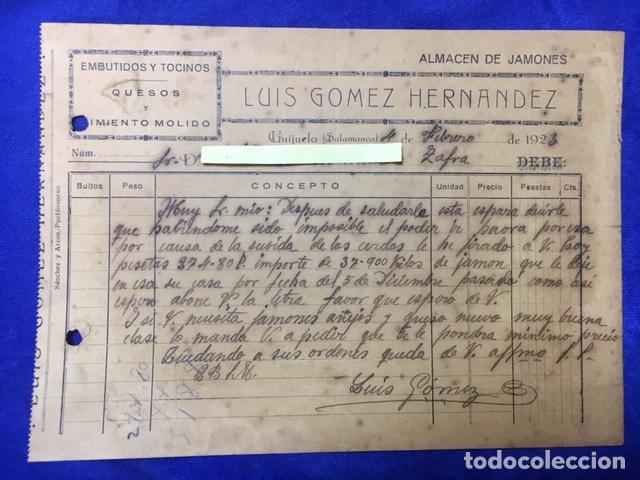 ALMACEN DE JAMONES
EMBUTIDOS Y TOCINOS
QUESOS
Y
PIMIENTO MOLIDO
LUIS GOMEZ HERNANDEZ
Guijuelo (Salamanca) 4 de Febrero de 1923
Núm. Sr. D. Zafra DEBE:
Bultos Peso CONCEPTO Unidad Precio Pesetas Cts.
Muy Sr. mio: Despues de saludarle esta espara decirle
que habiendome sido imposible el poder ir haora por esa
por causa de la subida de los cerdos le he jirado a V. hoy
pesetas 374.80 importe de 37-900 kilos de jamon que le deje
en esa su casa por fecha del 5 de Diciembre pasada como asi
espero abone V. la letra favor que espero de V.
I si V. necesita jamones añejos y queso nuevo muy buena
clase lo manda V. a pedir que se le pondra minimo precio
Quedando a sus ordenes queda de V. affmo
Luis Gómez
Sánchez y Arcos.-Pueblonuevo
todocoleccion
todocoleccion.net